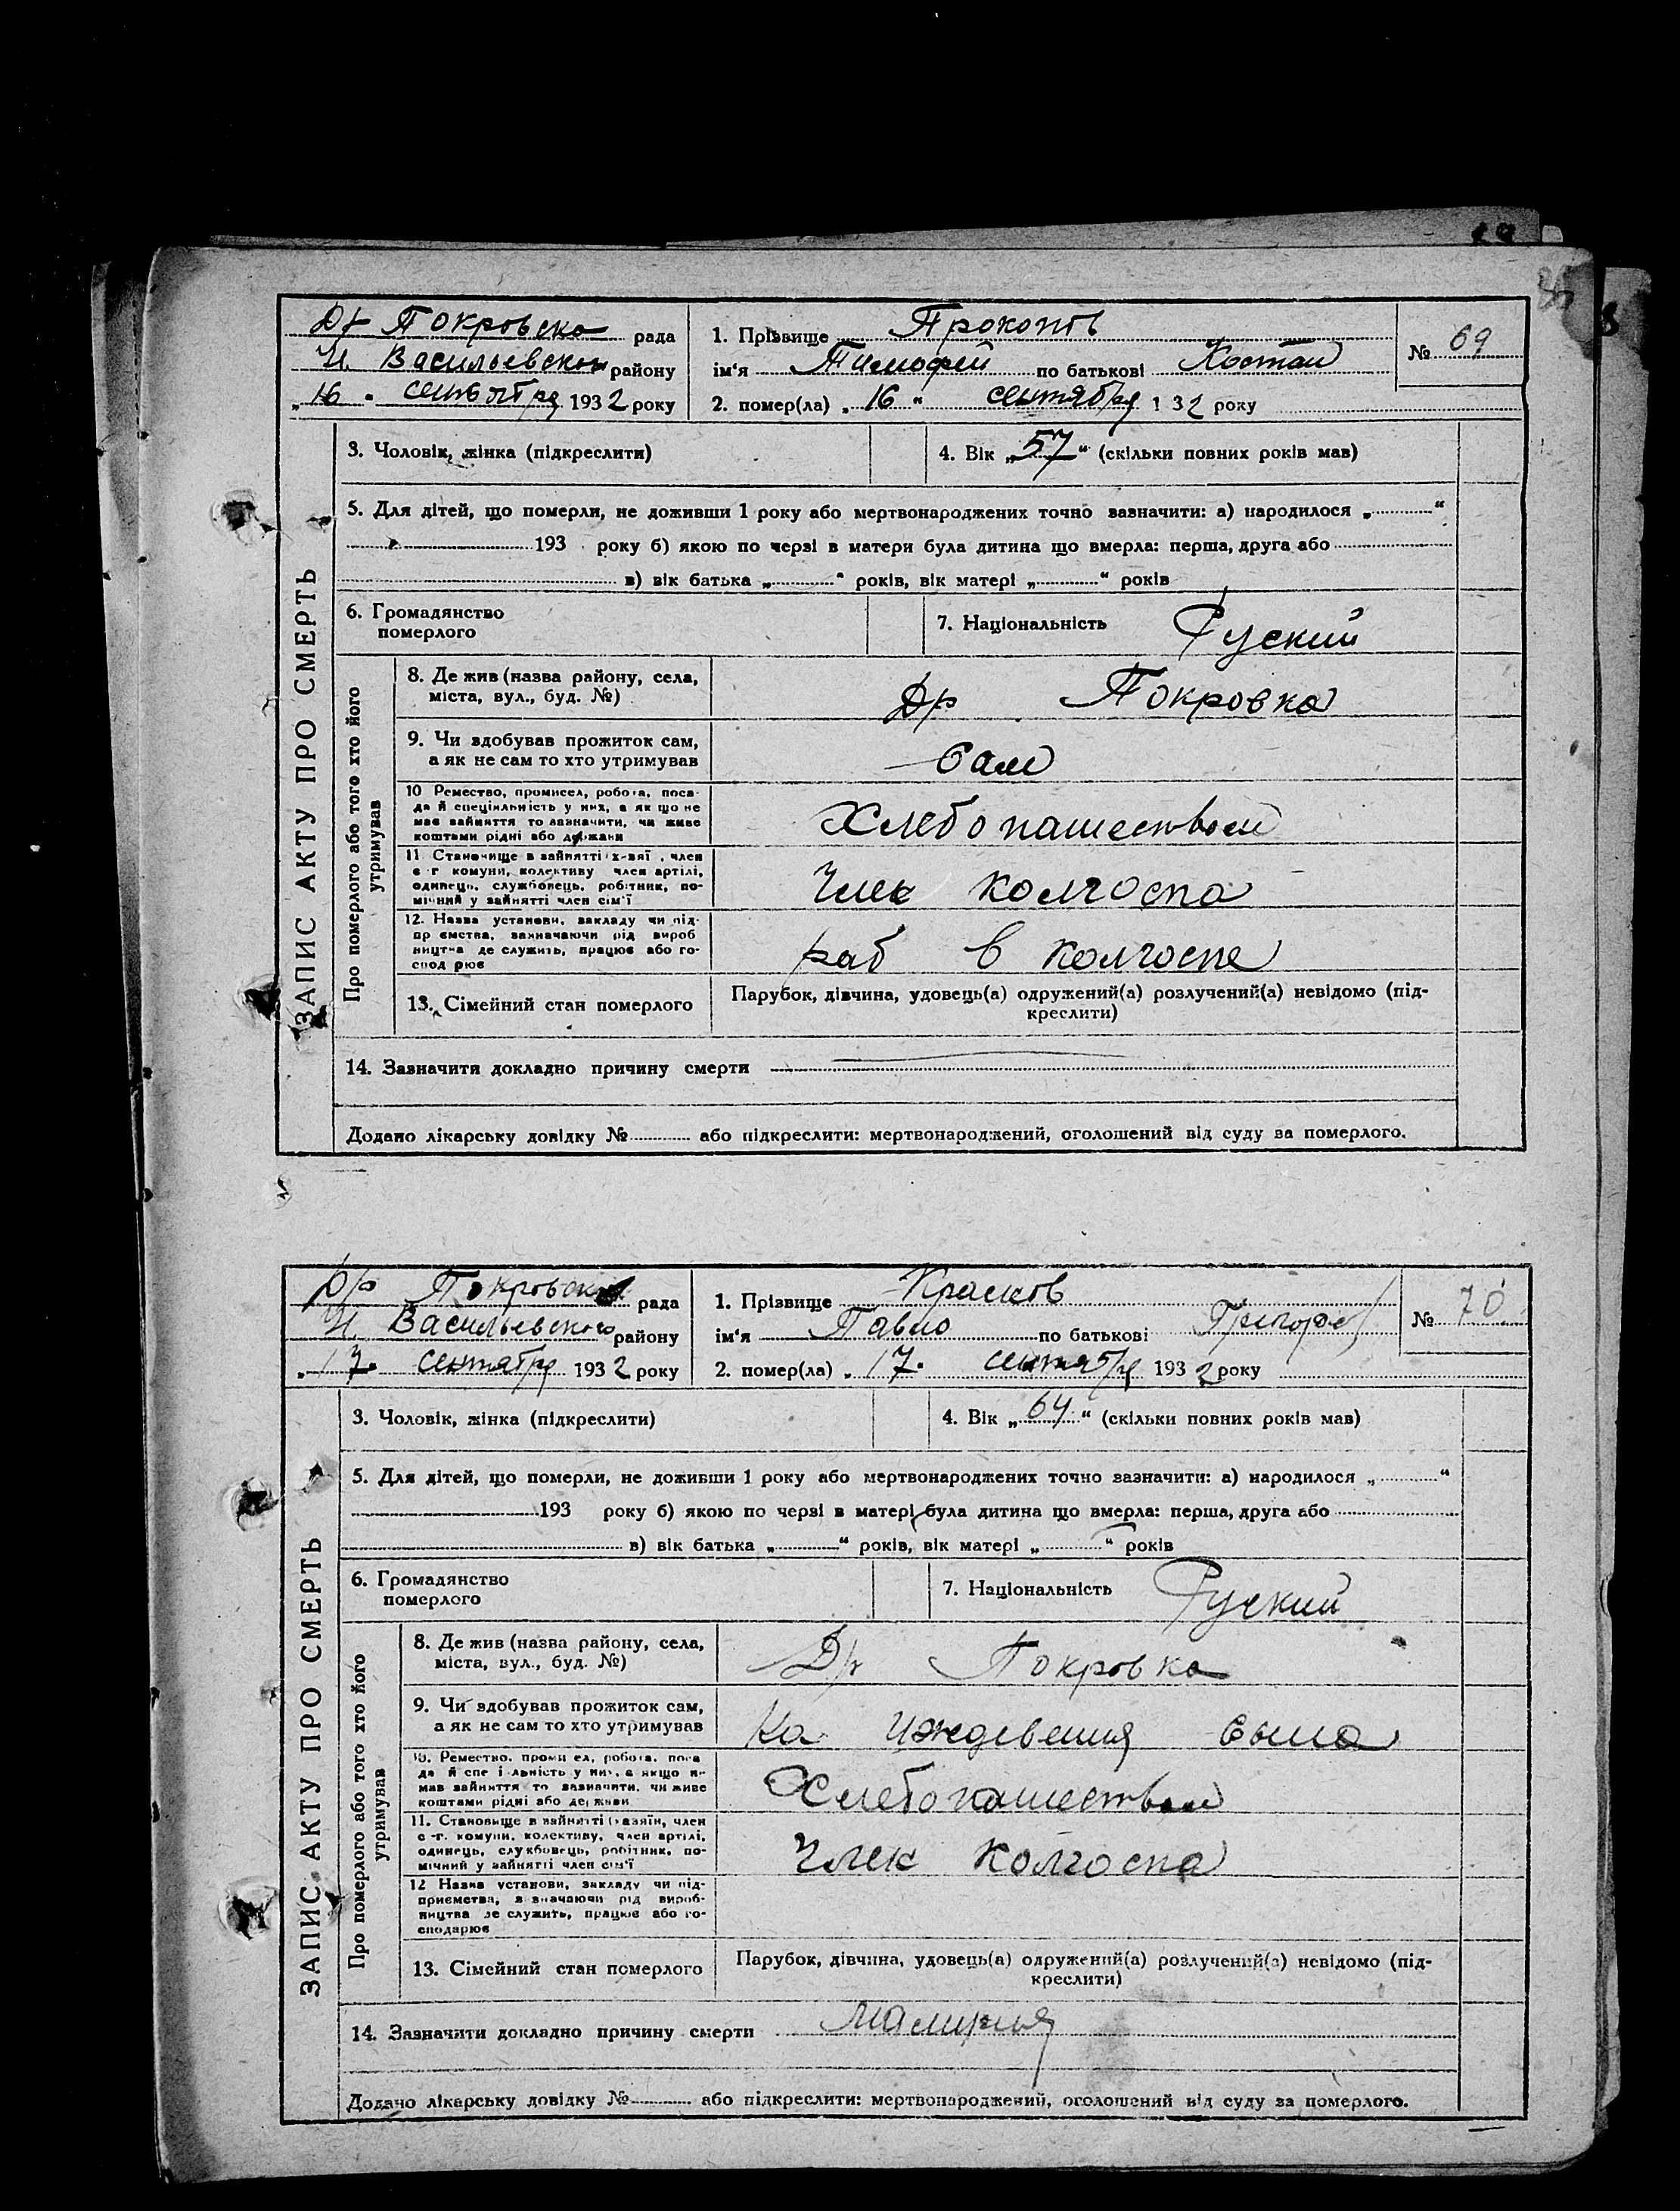 35
Др Покровско рада
Н. Васильевского району
„16" сентября 1932 року
1. Прізвище Прокопов
ім'я Тимофей по батькові Костан
2. помер(ла) „16" сентября 1 32 року
№ 69
ЗАПИС АКТУ ПРО СМЕРТЬ
3. Чоловік, жінка (підкреслити)
4. Вік „57" (скільки повних років мав)
5. Для дітей, що померли, не доживши 1 року або мертвонароджених точно зазначити: а) народилося „ "
193 року б) якою по черзі в матери була дитина що вмерла: перша, друга або
в) вік батька „ " років, вік матері „ " років
6. Громадянство
померлого
7. Національність Руский
Про померлого або того хто його
утримував
8. Де жив (назва району, села,
міста, вул., буд. №)
Др Покровка
9. Чи здобував прожиток сам,
а як не сам то хто утримував
Сам
10 Ремество, промисел, робота, поса-
да й спеціяльність у них, а як що не
має зайняття то зазначити, чи живе
коштами рідні або держави
Хлебопашеством
11 Становище в зайнятті х-зяї , член
с г комуни, колективу член артілі,
одинець, службовець, робітник, по-
мічний у зайнятті член сім'ї
Член колгоспа
12. Назва установи, закладу чи під-
пр ємства, зазначаючи рід вироб
ництва де служить, працює або го-
спод рює
раб в колгоспе
13. Сімейний стан померлого
Парубок, дівчина, удовець(а) одружений(а) розлучений(а) невідомо (під-
креслити)
14. Зазначити докладно причину смерти
Додано лікарську довідку № або підкреслити: мертвонароджений, оголошений від суду за померлого.
Др Покровско рада
Н. Васильевского району
„17" сентября 1932 року
1. Прізвище Красков
ім'я Павло по батькові Григор
2. помер(ла) „17" сентября 1932 року
№ 70
ЗАПИС АКТУ ПРО СМЕРТЬ
3. Чоловік, жінка (підкреслити)
4. Вік „64" (скільки повних років мав)
5. Для дітей, що померли, не доживши 1 року або мертвонароджених точно зазначити: а) народилося „ "
193 року б) якою по черзі в матері була дитина що вмерла: перша, друга або
в) вік батька „ " років, вік матері „ " років
6. Громадянство
померлого
7. Національність Руский
Про померлого або того хто його
утримував
8. Де жив (назва району, села,
міста, вул., буд. №)
Др Покровка
9. Чи здобував прожиток сам,
а як не сам то хто утримував
На иждевения сына
10. Ремество, проми ел, робота, поса
да й спе і льність у них, а якщо н-
мав зайняття то зазначити, чи живе
коштами рідні або держави
Хлебопашеством
11. Становище в зайнятті (хазяїн, член
с -г. комуни, колективу, член артілі,
одинець, службовець, робітник, по-
мічний у зайнятті член сім'ї
Член колгоспа
12 Назва установи, закладу чи під-
приємства, з значаючи рід вироб-
ництва де служить, працює або го-
сподарює
13. Сімейний стан померлого
Парубок, дівчина, удовець(а) одружений(а) розлучений(а) невідомо (під-
креслити)
14. Зазначити докладно причину смерти Малирия
Додано лікарську довідку № або підкреслити: мертвонароджений, оголошений від суду за померлого.